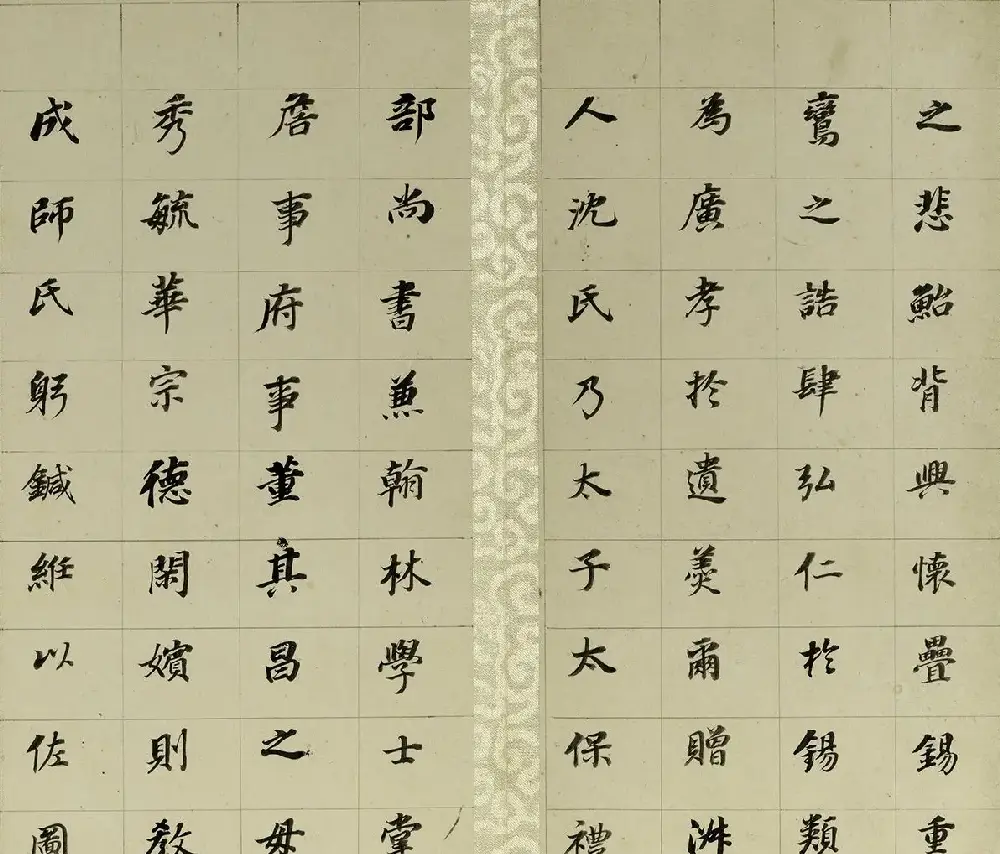 之悲鮐背興懷疊錫重
鸞之誥肆弘仁於錫類
為廣孝於遺羹爾贈淑
人沈氏乃太子太保禮
部尚書兼翰林學士掌
詹事府事董其昌之母
秀毓華宗德閑嬪則教
成師氏躬鍼維以佐圖